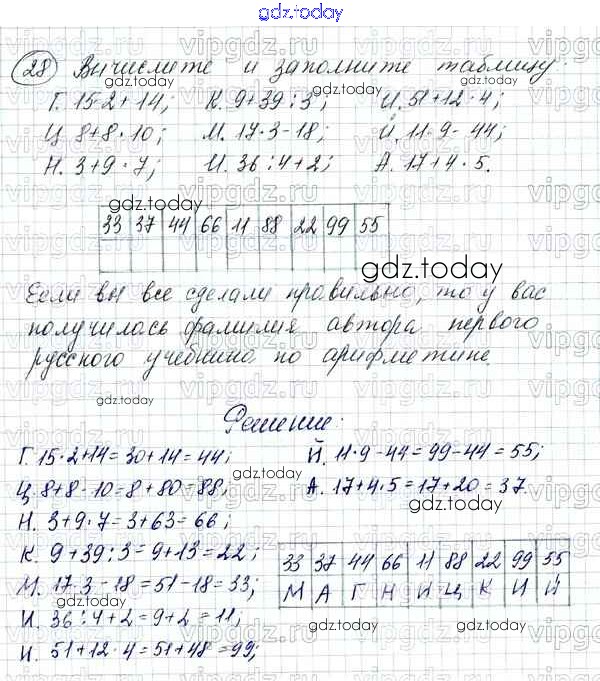 gdz.today
28 Вычислите и заполните таблицу:
gdz.today
Г. 15·2+14; К. 9+39:3; И. 51+12·4;
Ц 8+8·10; М. 17·3-18; Й. 11·9-44;
Н. 3+9·7; И. 36:4+2; А. 17+4·5.
gdz.today
33 37 44 66 11 88 22 99 55
gdz.today
Если вы все сделали правильно, то у вас
получилась фамилия автора первого
русского учебника по арифметике.
gdz.today
Решение:
Г. 15·2+14=30+14=44; Й. 11·9-44=99-44=55;
Ц. 8+8·10=8+80=88; А. 17+4·5=17+20=37.
gdz.today
Н. 3+9·7=3+63=66;
К. 9+39:3=9+13=22; 33 37 44 66 11 88 22 99 55
М. 17·3-18=51-18=33; М А Г Н И Ц К И Й
gdz.today
И. 36:4+2=9+2=11;
gdz.today
И. 51+12·4=51+48=99;